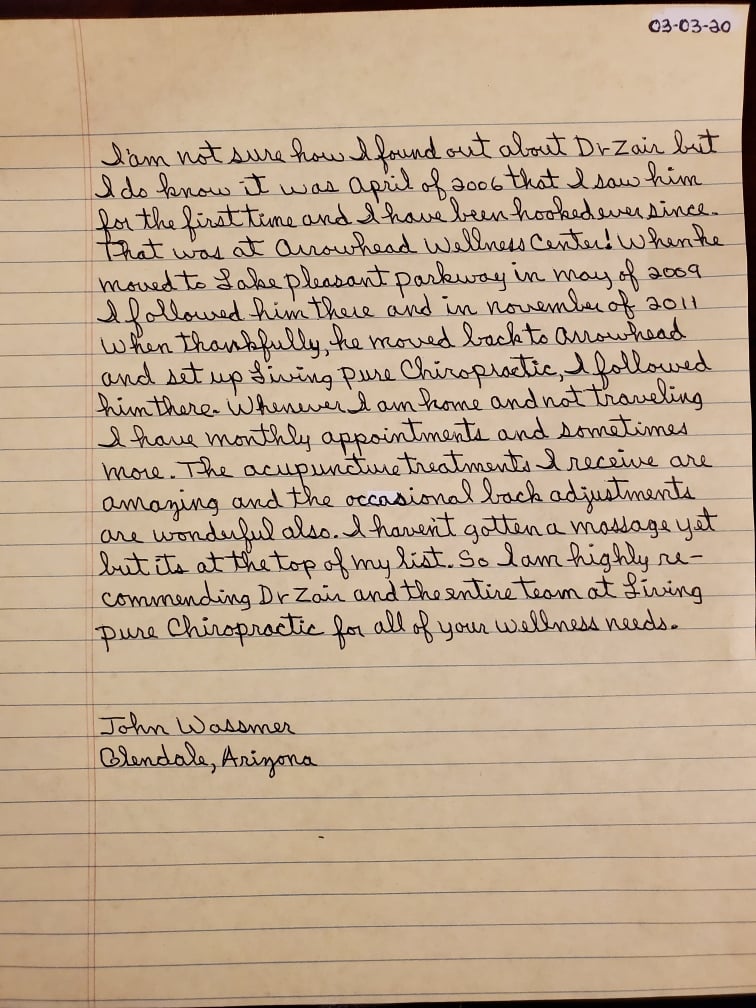 03-03-20
I'am not sure how I found out about Dr Zair but
I do know it was April of 2006 that I saw him
for the first time and I have been hooked ever since.
That was at Arrowhead Wellness Center! When he
moved to Lake pleasant parkway in may of 2009
I followed him there and in november of 2011
when thankfully, he moved back to Arrowhead
and set up Living pure Chiropractic, I followed
him there. Whenever I am home and not traveling
I have monthly appointments and sometimes
more. The acupuncture treatments I receive are
amazing and the occasional back adjustments
are wonderful also. I haven't gotten a massage yet
but its at the top of my list. So I am highly re-
commending Dr Zair and the entire team at Living
pure Chiropractic for all of your wellness needs.
John Wassmer
Glendale, Arizona